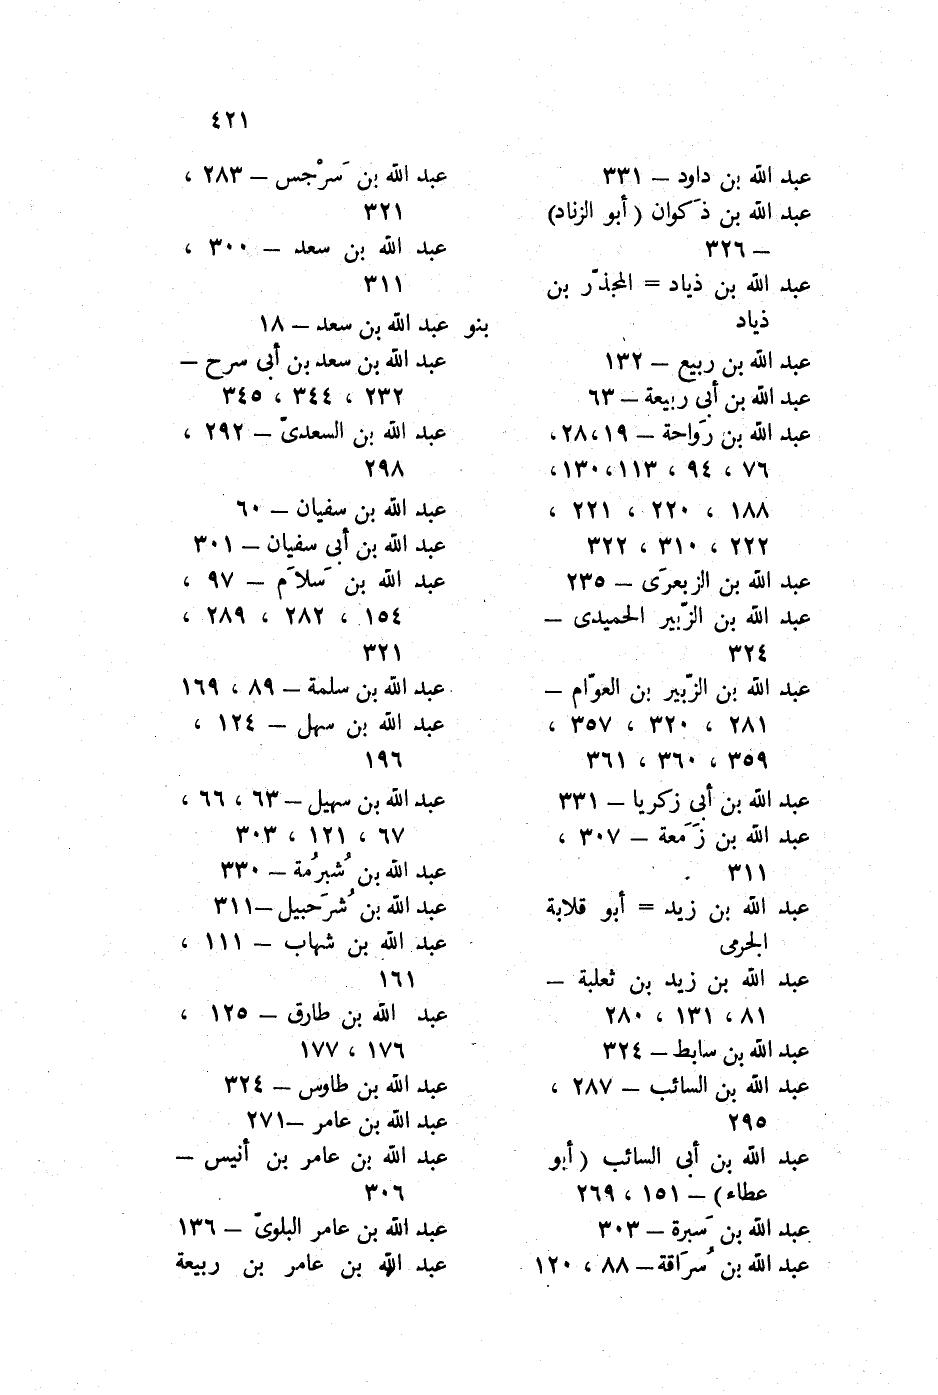 ٤٢١
عبد الله بن داود – ٣٣١
عبد الله بن ذَكوان (أبو الزناد)
– ٣٢٦
عبد الله بن ذياد = المجذّر بن
ذياد
عبد الله بن ربيع – ١٣٢
عبد الله بن أبى ربيعة – ٦٣
عبد الله بن رَواحة – ١٩،٢٨،
٧٦ ، ٩٤ ، ١١٣،١٣٠،
١٨٨ ، ٢٢٠ ، ٢٢١ ،
٢٢٢ ، ٣١٠ ، ٣٢٢
عبد الله بن الزبعرَى – ٢٣٥
عبد الله بن الزّبير الحميدى –
٣٢٤
عبد الله بن الزّبير بن العوّام –
٢٨١ ، ٣٢٠ ، ٣٥٧ ،
٣٥٩ ، ٣٦٠ ، ٣٦١
عبد الله بن أبى زكريا – ٣٣١
عبد الله بن زَمَعة – ٣٠٧ ،
٣١١
عبد الله بن زيد = أبو قلابة
الجرمى
عبد الله بن زيد بن ثعلبة –
٨١ ، ١٣١ ، ٢٨٠
عبد الله بن سابط – ٣٢٤
عبد الله بن السائب – ٢٨٧ ،
٢٩٥
عبد الله بن أبى السائب (أبو
عطاء) – ١٥١ ، ٢٦٩
عبد الله بن سَبرة – ٣٠٣
عبد الله بن سُرَاقة – ٨٨ ، ١٢٠
عبد الله بن سَرْجس – ٢٨٣ ،
٣٢١
عبد الله بن سعد – ٣٠٠ ،
٣١١
بنو عبد الله بن سعد – ١٨
عبد الله بن سعد بن أبى سرح –
٢٣٢ ، ٣٤٤ ، ٣٤٥
عبد الله بن السعدىّ – ٢٩٢ ،
٢٩٨
عبد الله بن سفيان – ٦٠
عبد الله بن أبى سفيان – ٣٠١
عبد الله بن سَلاَم – ٩٧ ،
١٥٤ ، ٢٨٢ ، ٢٨٩ ،
٣٢١
عبد الله بن سلمة – ٨٩ ، ١٦٩
عبد الله بن سهل – ١٢٤ ،
١٩٦
عبد الله بن سهيل – ٦٣ ، ٦٦ ،
٦٧ ، ١٢١ ، ٣٠٣
عبد الله بن شُبرُمة – ٣٣٠
عبد الله بن شُرَحبيل – ٣١١
عبد الله بن شهاب – ١١١ ،
١٦١
عبد الله بن طارق – ١٢٥ ،
١٧٦ ، ١٧٧
عبد الله بن طاوس – ٣٢٤
عبد الله بن عامر – ٢٧١
عبد الله بن عامر بن أنيس –
٣٠٦
عبد الله بن عامر البلوىّ – ١٣٦
عبد الله بن عامر بن ربيعة